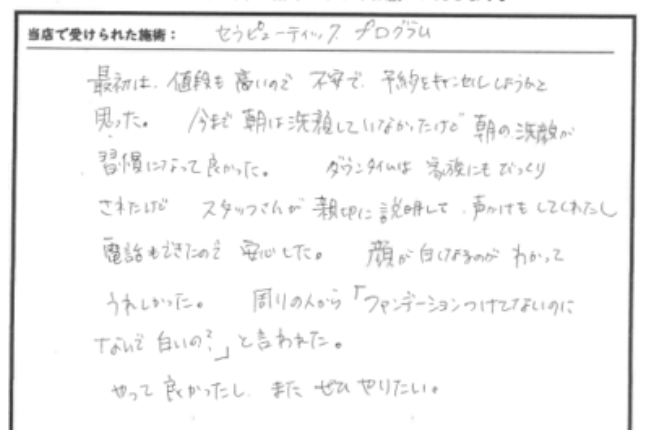 当店で受けられた施術： セラピューティック プログラム
最初は、値段も高いので 不安で、予約をキャンセルしようかと
思った。 今まで朝は洗顔していなかったけど 朝の洗顔が
習慣になって良かった。 ダウンタイムは 家族にもびっくり
されたけど スタッフさんが 親切に説明して、声かけもしてくれたし
電話もできたので 安心した。 顔が白くなるのが わかって
うれしかった。 周りの人から「ファンデーションつけてないのに
なんで白いの？」と言われた。
やって良かったし、また ぜひ やりたい。